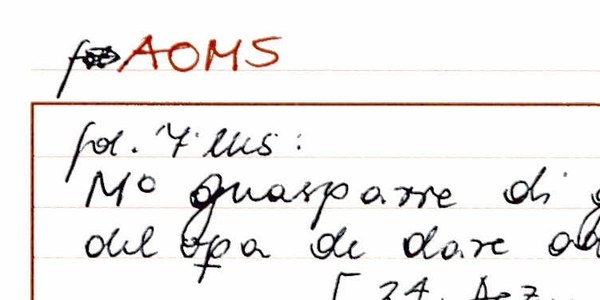 AOMS
fol. 7 lus:
Mo guasparre di
del opa de dare
[ 24.